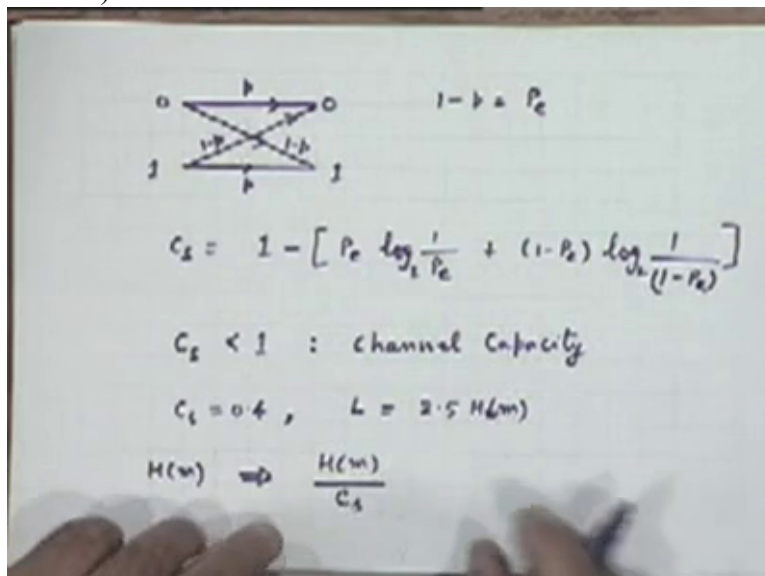 p
0 0 1-p = Pe
1-p 1-p
1 p 1
Cs = 1 - [ Pe log2 1/Pe + (1-Pe) log2 1/(1-Pe) ]
Cs < 1 : Channel Capacity
Cs = 0.4 , L = 2.5 H(m)
H(m) ⇒ H(m)/Cs